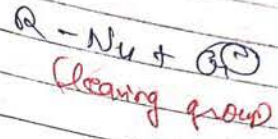 R - Nu +
(leaving group)